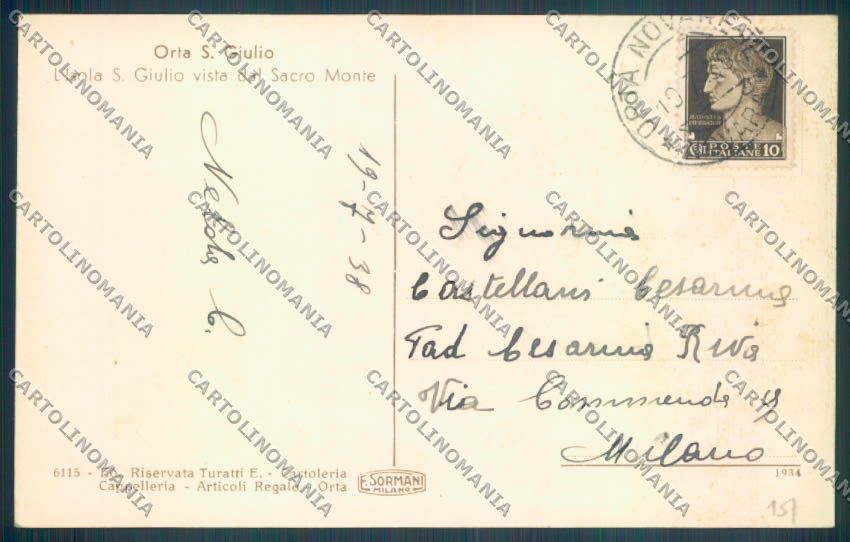 Orta S. Giulio
L'Isola S. Giulio vista dal Sacro Monte
ORTA NOVARESE
POSTE
ITALIANE 10
19-7-38
Signorina
Castellani Cesarina
Tad Cesarina Riva
Via Commenda
Milano
6115 - Ed. Riservata Turatti E. - Cartoleria
Cappelleria - Articoli Regalo - Orta
E. SORMANI
MILANO
1934
157
CARTOLINOMANIA